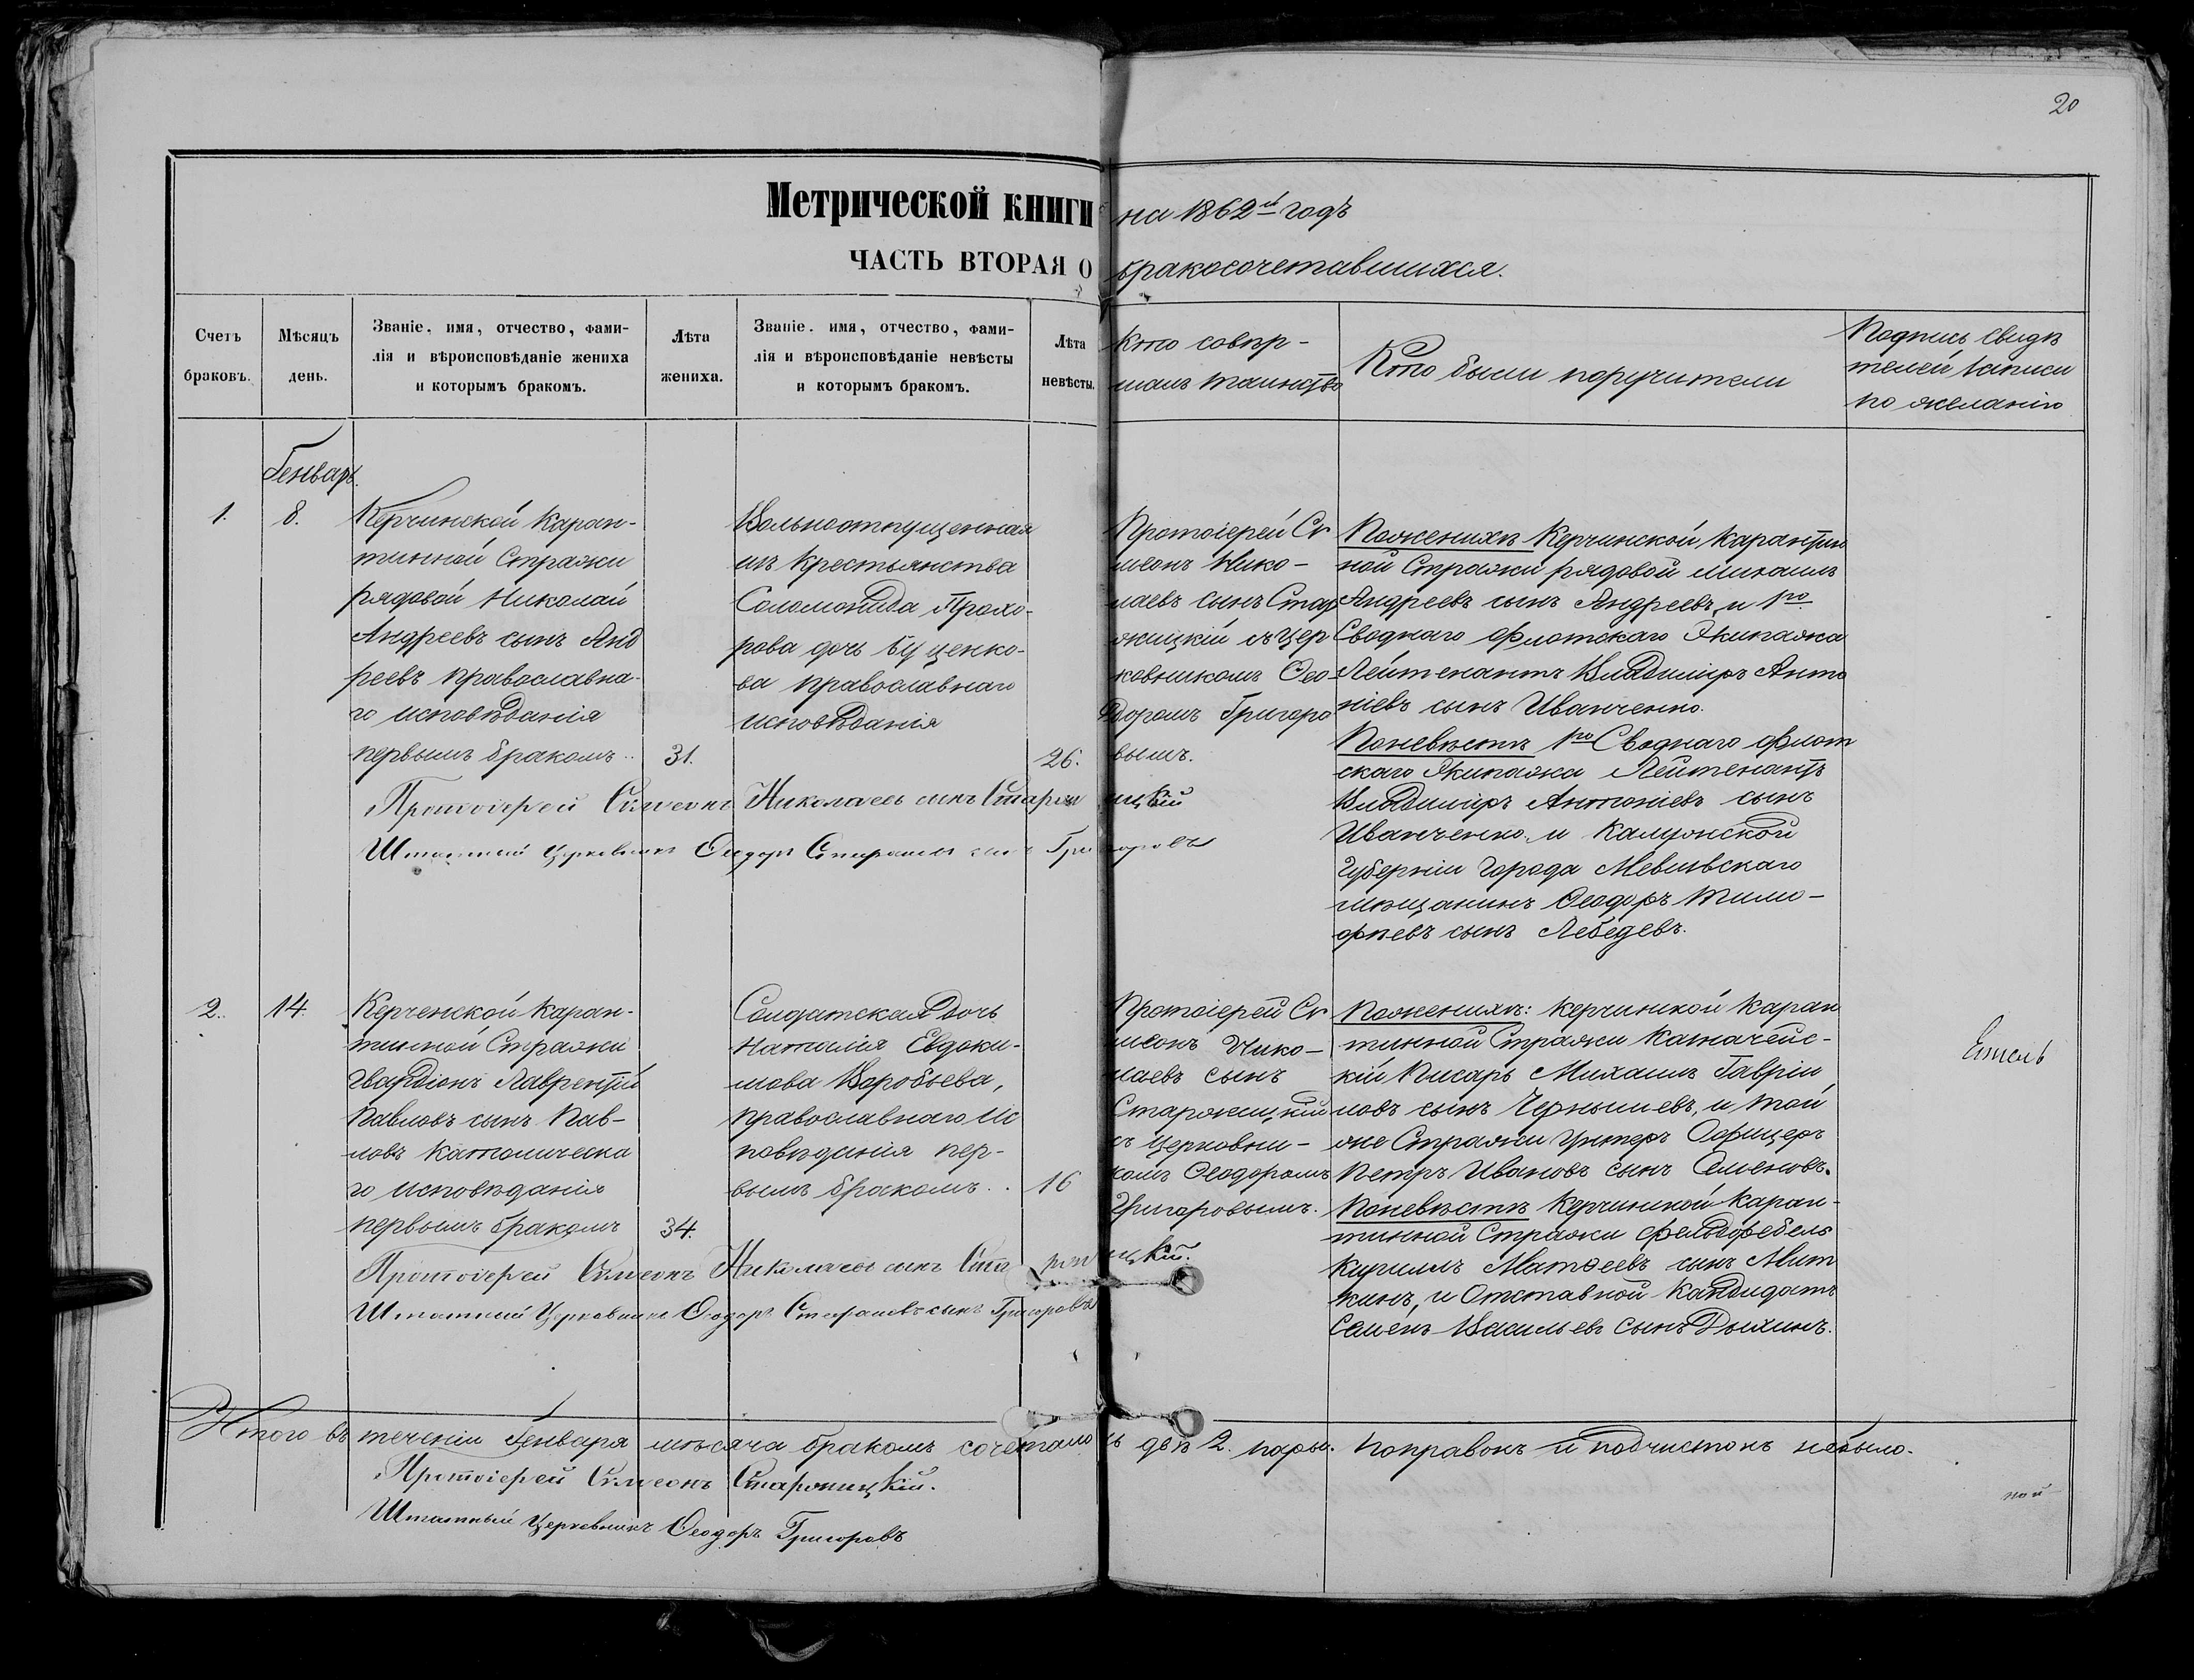 20
Метрической книги на 1862й годъ
ЧАСТЬ ВТОРАЯ О бракосочетавшихся.
Счетъ
браковъ.
Мѣсяцъ
день.
Званіе, имя, отчество, фами-
лія и вѣроисповѣданіе жениха
и которымъ бракомъ.
Лѣта
жениха.
Званіе, имя, отчество, фами-
лія и вѣроисповѣданіе невѣсты
и которымъ бракомъ.
Лѣта
невѣсты.
Кто совер-
шалъ таинство
Кто были поручители
Подпись свидѣ
телей записи
по желанію
Генварь.
1.
8.
Керчинской Каран-
тинной Стражи
рядовой Николай
Андреевъ сынъ Анд
реевъ православна-
го исповѣданія
первымъ бракомъ..
31.
Вольноотпущенная
изъ крестьянства
Соломонида Прохо-
рова дочь Буценко-
ва православнаго
исповѣданія
26.
Протоіерей Си
меонъ Нико-
лаевъ сынъ Стар
жицкій съ цер
ковникомъ Ѳео-
доромъ Григоро
вымъ.
Поженихѣ Керчинской Карантин
ной Стражи рядовой Михаилъ
Андреевъ сынъ Андреевъ, и 1го
Своднаго Флотскаго Экипажа
Лейтенантъ Владиміръ Анто
ніевъ сынъ Иванченко.
Поневѣстѣ 1го Своднаго Флот
скаго Экипажа Лейтенантъ
Владиміръ Антоніевъ сынъ
Иванченко и Калужской
Губерніи города
мѣщанинъ Ѳеодоръ Тимо-
фѣевъ сынъ Лебедевъ.
Протоіерей Симеонъ Николаевъ сынъ Старжицкій
Штатный Церковникъ Ѳеодоръ Стефановъ сынъ Григоровъ
2.
14.
Керченской Каран-
тинной Стражи
Гвардіонъ Лаврентій
Павловъ сынъ Пав-
ловъ католическа
го исповѣданія
первымъ бракомъ
34.
Солдатская Дочь
Наталія Евдоки-
мова Воробьева,
православнаго ис
повѣданія пер-
вымъ бракомъ..
16
Протоіерей Си
меонъ Нико-
лаевъ сынъ
Старжицкій
съ церковни-
комъ Ѳеодоромъ
Григоровымъ.
Поженихѣ: Керчинской Каран
тинной Стражи Казначейс-
кій Писарь Михаилъ Гаврiи
ловъ сынъ Чернышевъ, и той
же Стражи Унтеръ Офицеръ
Петръ Ивановъ сынъ Семеновъ.
Поневѣстѣ Керчинской Каран-
тинной Стражи Фельдфебель
Кирилъ Матѳеевъ сынъ Мит
кинъ, и Отставной Кандидатъ
Семенъ Васильевъ сынъ Дыхинъ.
Протоіерей Симеонъ Николаевъ сынъ Старжицкій.
Штатный Церковникъ Ѳеодоръ Стефановъ сынъ Григоровъ
Итого въ теченіи Генваря мѣсяца бракомъ сочеталось двѣ 2. пары. поправокъ и подчистокъ небыло.
Протоіерей Симеонъ Старжицкій.
Штатный Церковникъ Ѳеодоръ Григоровъ